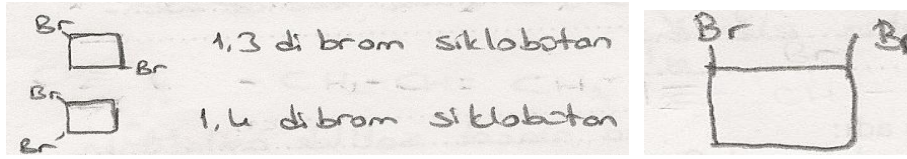 Br
1,3 di brom siklobütan
Br
Br
1,4 dibrom siklobütan
Br
Br Br